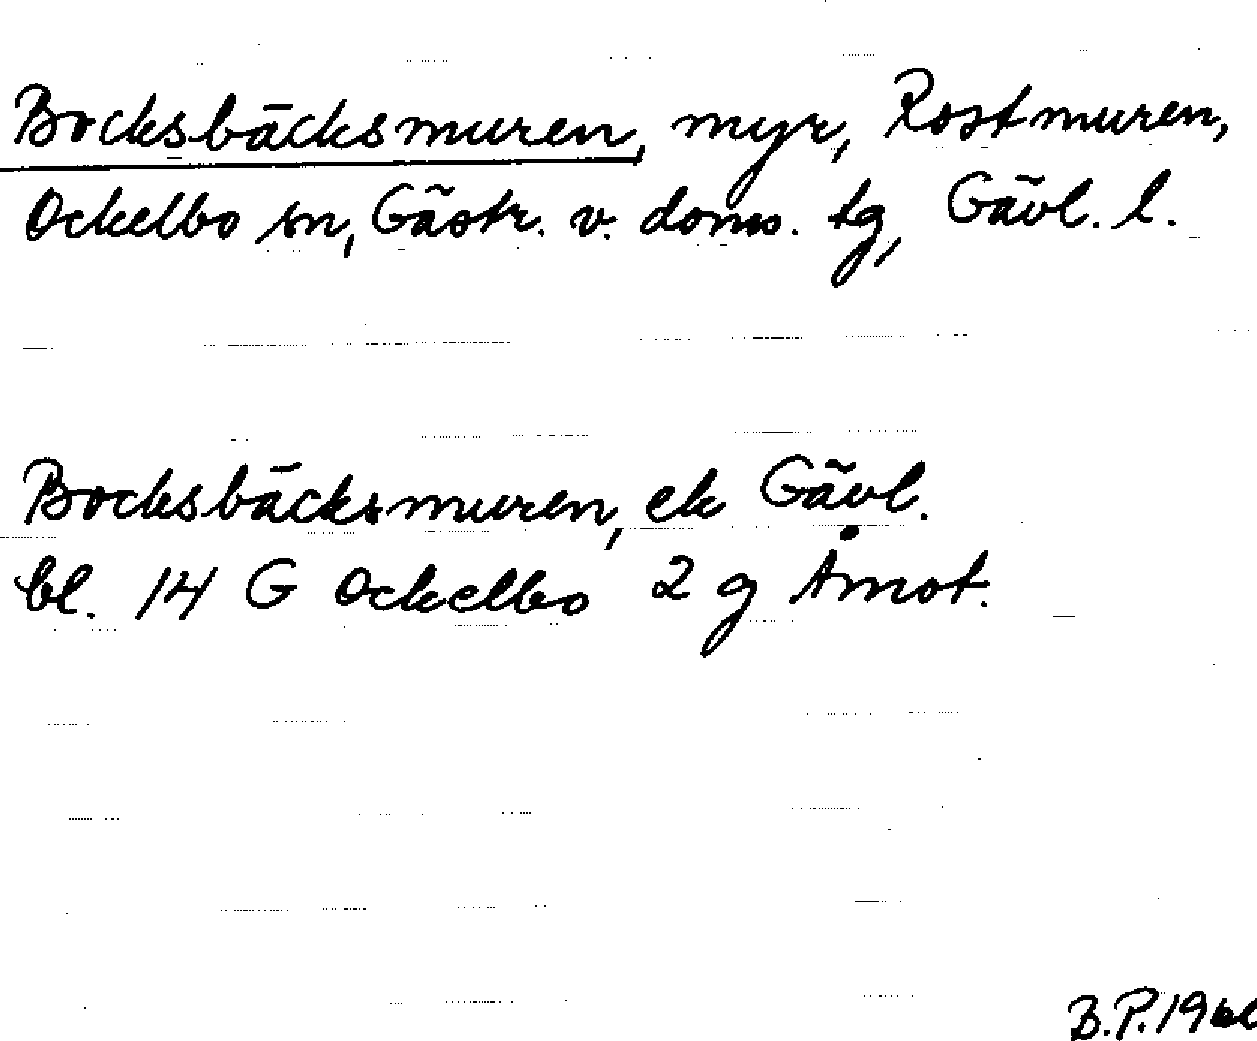 Bocksbäcksmuren, myr, Rostmuren,
Ockelbo sn, Gästr. v. doms. tg, Gävl. l.
Bocksbäcksmuren, ek Gävl.
bl. 14 G Ockelbo 2 g Åmot.
B.P. 19